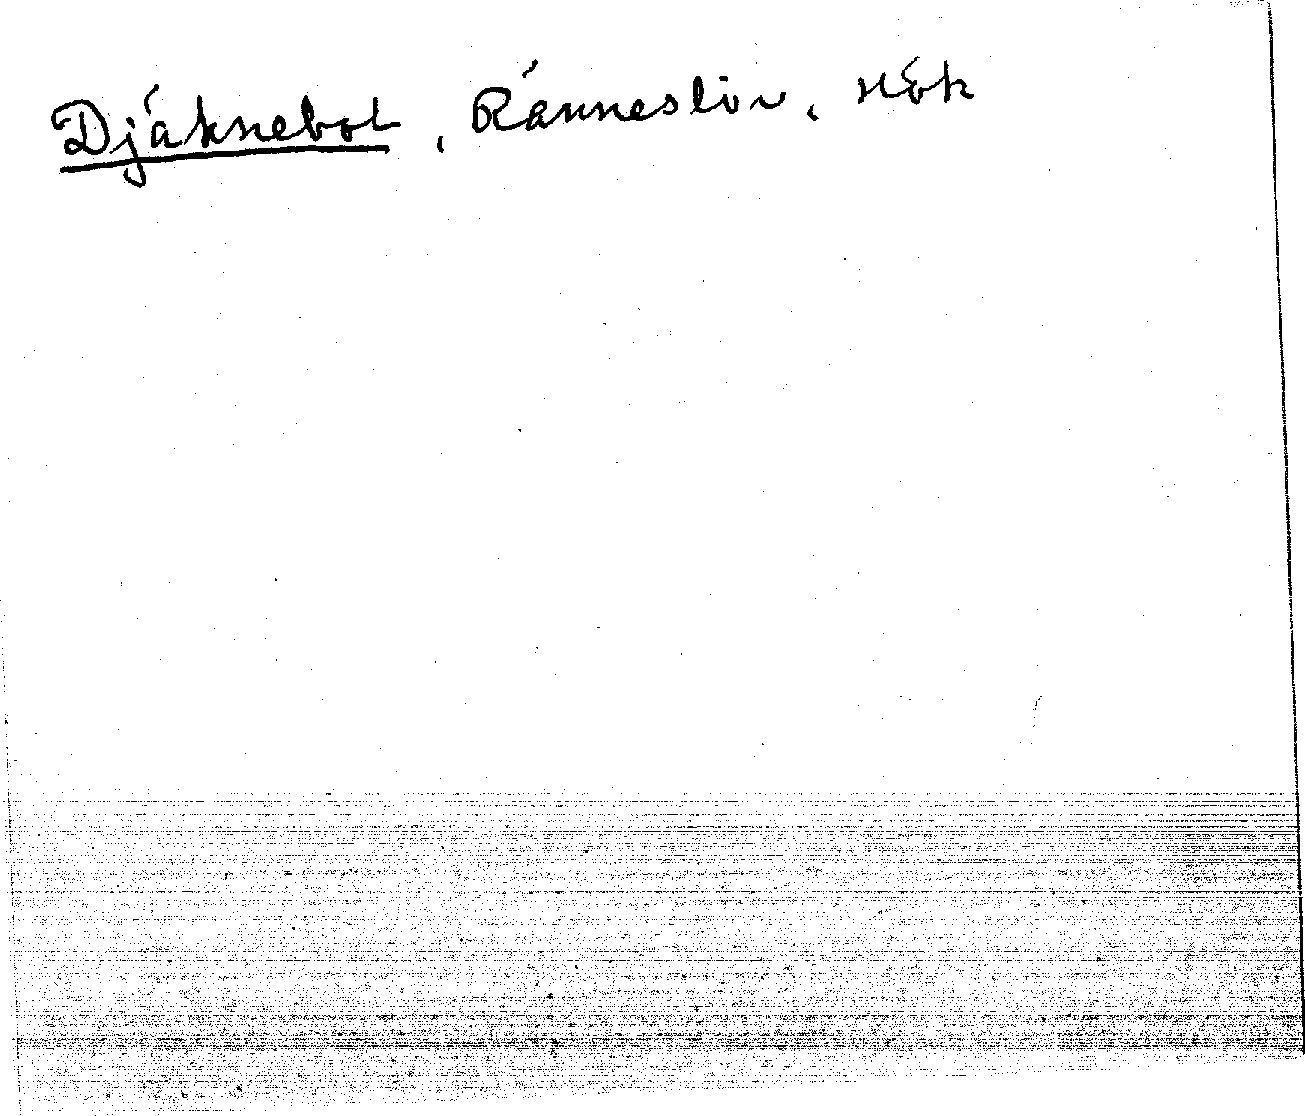 Djäknebol, Ränneslöv, Hök